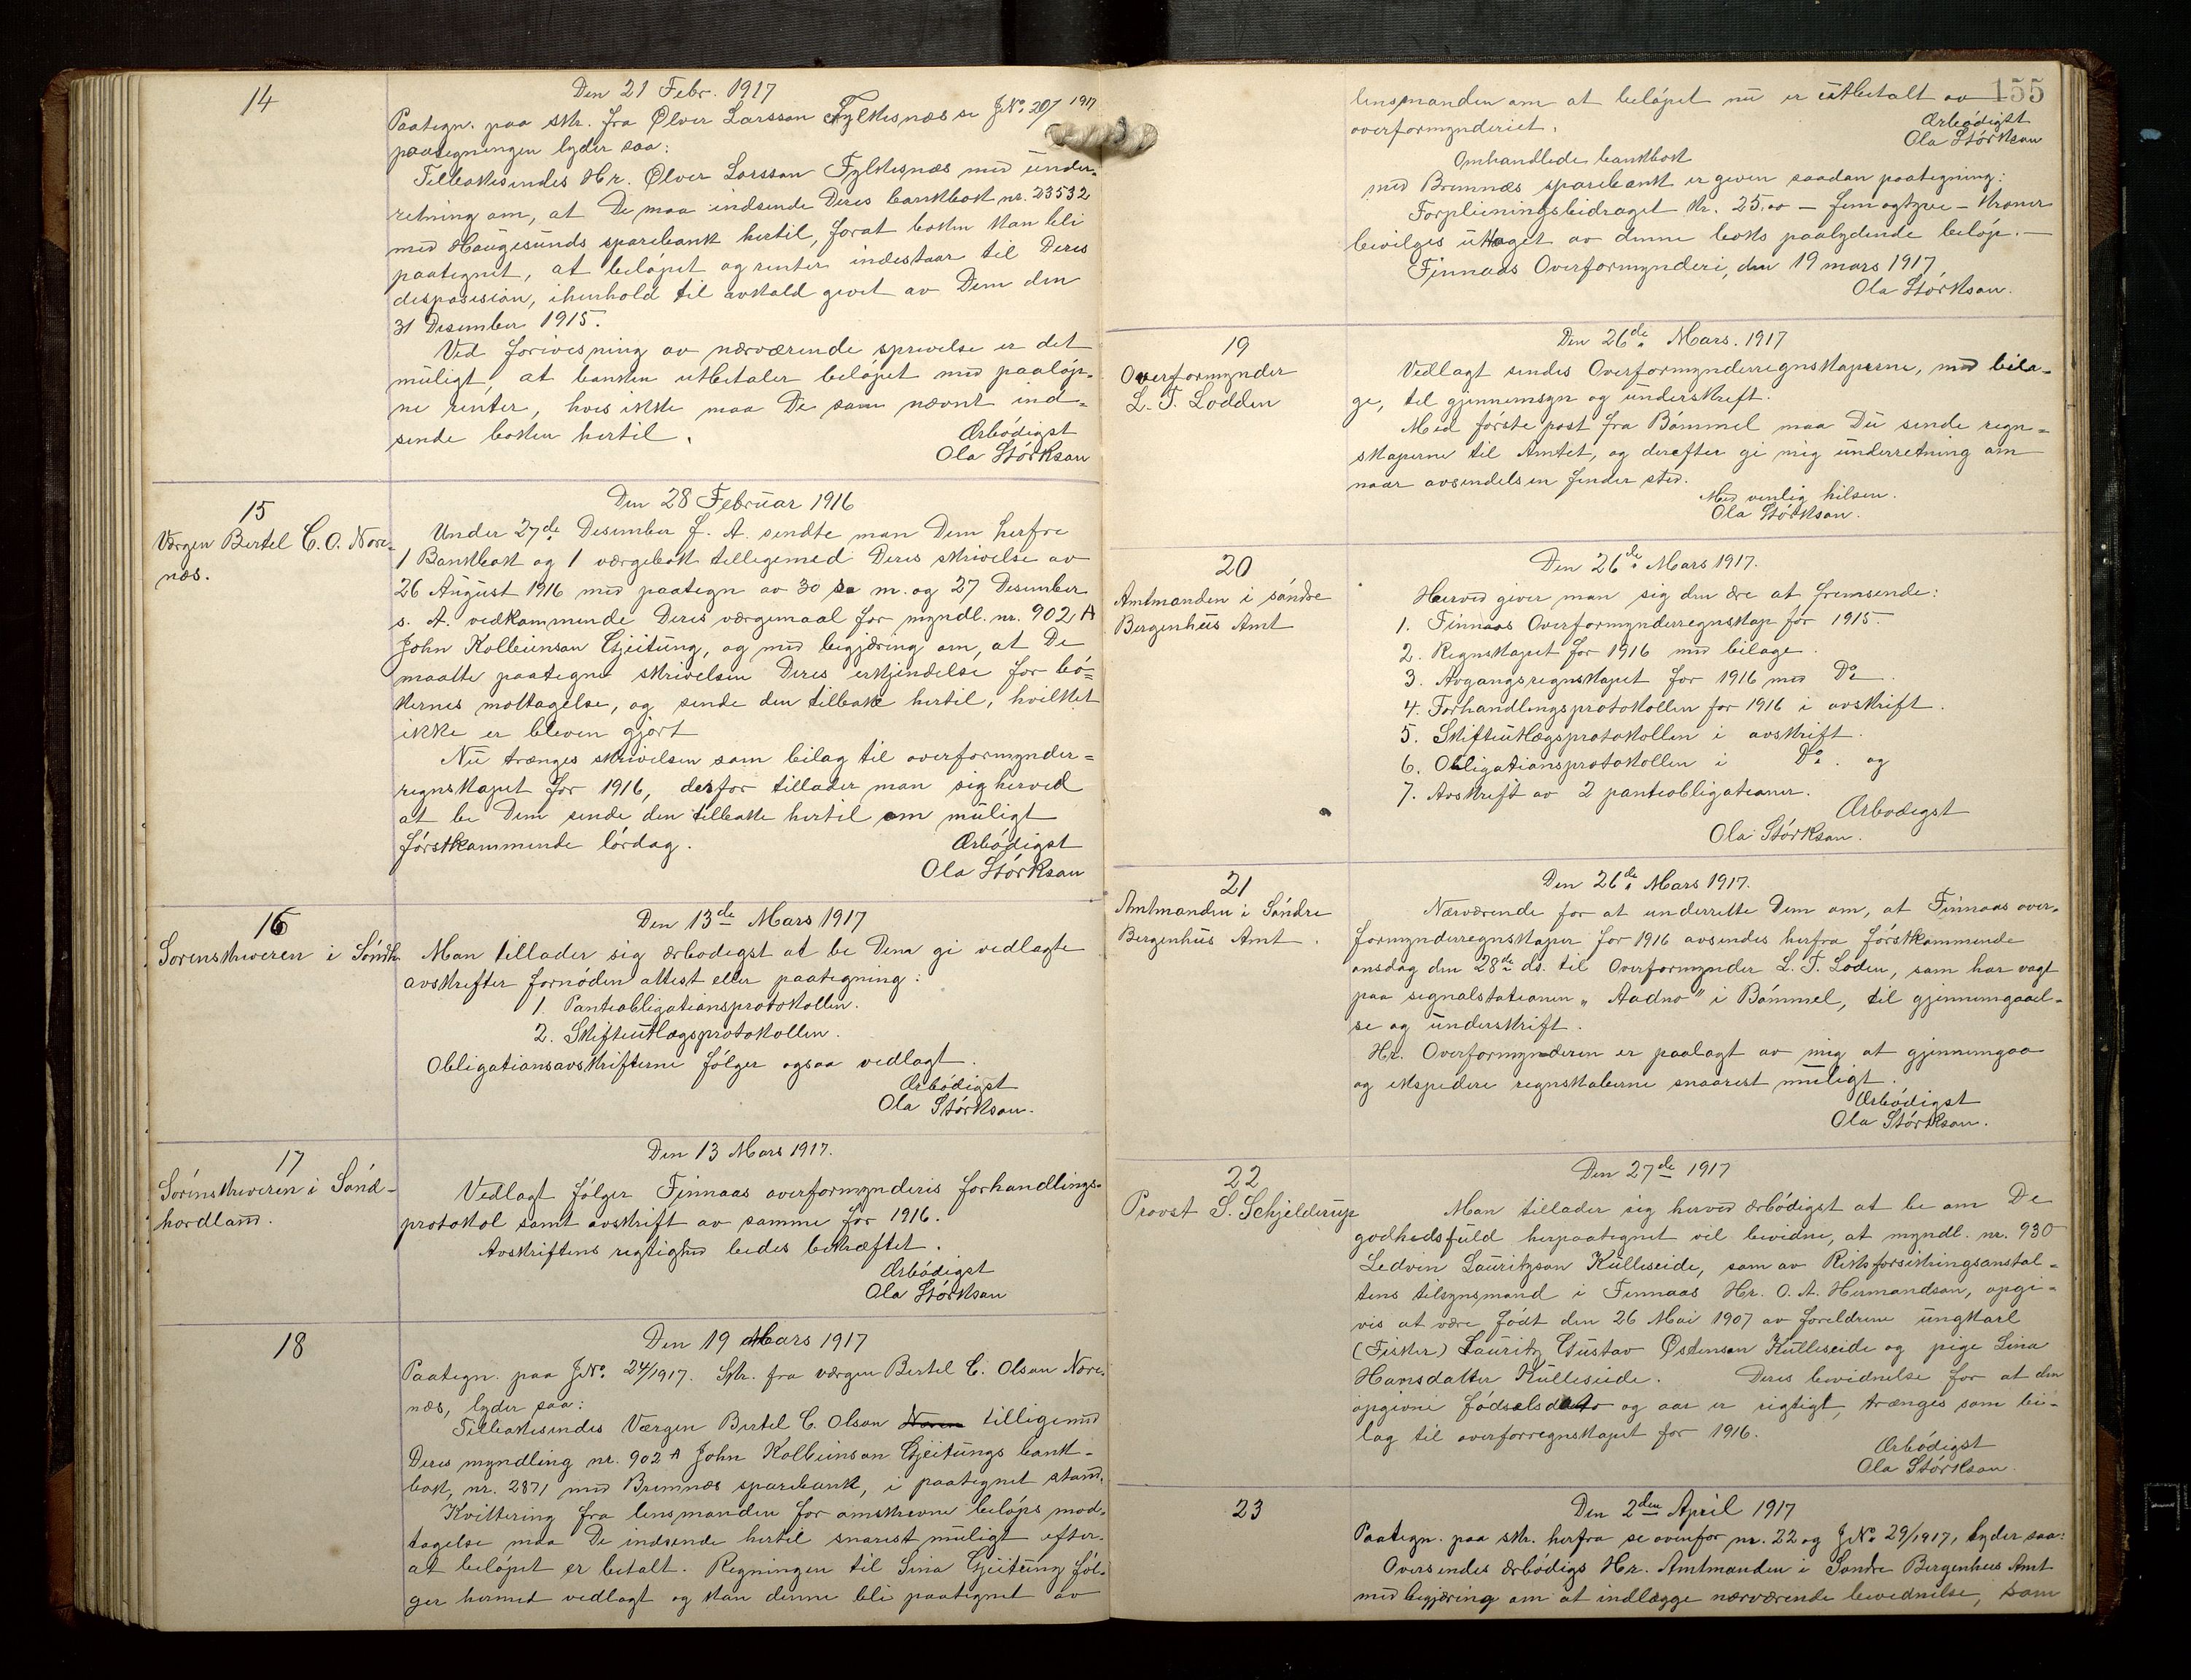 14
Den 21 Febr. 1917
Paategn. paa skr. fra Ølver Larsson Fylkesnæs se J.No. 20/1917
paategningen lyder saa:
Tilbakesendes Hr. Ølver Larsson Fylkesnæs med under-
retning om, at De maa indsende Deres bankbok nr. 23532
med Haugesunds sparebank hertil, forat boken kan bli
paategnet, at beløpet og renter indestaar til Deres
disposision, ihenhold til avkald givet av Dem den
31 Desember 1915.
Ved forivesning av nærværende sprivelse er det
muligt, at banken utbetaler beløpet med paaløp-
ne renter, hvis ikke maa De som nævnt ind-
sende boken hertil.
Ærbødigst
Ola Størkson
15
Værgen Bertel C. O. Nore-
næs.
Den 28 Februar 1916
Under 27de Desember f. A. sendte man Dem herfre
1 Bankbok og 1 værgebok tillegemed Deres skrivelse av
26 August 1916 med paategn av 30 sa m. og 27 Desember
s. A. vedkommende Deres værgemaal for myndl. nr. 902 A
John Kolbeinson Gjeitung, og med begjæring om, at De
maatte paategne skrivelsen Deres erkjendelse for bø-
kernes mottagelse, og sende den tilbake hertil, hvilket
ikke er bleven gjort
Nu trænges skrivelsen som bilag til overformynder-
regnskapet for 1916, derfor tillader man sig herved
at be Dem sende den tilbake hertil om muligt
førstkommende lørdag.
Ærbødigst
Ola Størkson
16
Sorenskriveren i Søndh.
Den 13de Mars 1917
Man tillader sig ærbodigst at be Dem gi vedlagte
avskrefter fornøden attest eller paategning:
1. Panteobligationsprotokollen.
2. Skifteutlægsprotokollen.
Obligationsavskrifterne følger ogsaa vedlagt.
Ærbødigst
Ola Størkson.
17
Sorinskriveren i Sønd-
hordland.
Den 13 Mars 1917.
Vedlagt følger Finnaas overformynderis forhandlings-
protokol samt avskrift av samme for 1916.
Avskriftens rigtighed bedes bekræftet.
Ærbødigst
Ola Størkson
18
Den 19 Mars 1917
Paategn. paa J.No. 24/1917. Skr. fra værgen Bertel C. Olson Nore-
næs, lyder saa:
Tilbakesendes Værgen Bertel C. Olson tilligemed
Deres myndling nr. 902 A John Kolbeinson Gjeitungs bank-
bok, nr. 2871 med Bremnæs sparebank, i paategnet stand.
Kvittering fra lensmanden for omskrevne beløps mod-
tagelse maa De indsende hertil snarest muligt efter-
at beløpet er betalt. Regningen til Sina Gjeitung føl-
ger hermed vedlagt og kan denne bli paategnet av
155
lensmanden om at beløpet nu er utbetalt av
overformynderiet.
Ærbødigst
Ola Størkson
Omhandlede bankbok
med Bremnæs sparebank er given saadan paategning:
Forpleiningsbidraget kr. 25.00 – femogtyve – kroner
bevilges uttaget av denne boks paalydende beløp.
Finnaas Overformynderi, den 19 mars 1917
Ola Størkson.
19
Overformynder
L. T. Lodden
Den 26de Mars. 1917
Vedlagt sendes Overformynderregnskaperne, med bila-
ge, til gjennemsyn og underskrift.
Med første post fra Bømmel maa Du sende regn-
skaperne til Amtet, og derefter gi mig underretning om
naar avsendelsen finder sted.
Med venlig hilsen.
Ola Størkson.
20
Amtmanden i søndre
Bergenhus Amt
Den 26de Mars 1917.
Herved giver man sig den ære at fremsende:
1. Finnaas Overformynderregnskap for 1915.
2. Regnskapet for 1916 med bilage.
3. Avgangsregnskapet for 1916 med Do.
4. Forhandlingsprotokollen for 1916 i avskrift.
5. Skifteutlægsprotokollen i avskrift.
6. Obligationsprotokollen i Do. og
7. Avskrift av 2 panteobligationer.
Ærbodigst
Ola Størkson.
21
Amtmanden i Søndre
Bergenhus Amt.
Den 26de Mars 1917.
Nærværende for at underrette Dem om, at Finnaas over-
formynderregnskaper for 1916 avsendes herfra førstkommende
onsdag den 28de ds. til Overformynder L. T. Loden, som har vagt
paa signalstationen „Aadno" i Bømmel, til gjennemgaael-
se og underskrift.
Hr. Overformynderen er paalagt av mig at gjennemgaa
og ekspedere regnskaberne snaarest muligt.
Ærbødigst
Ola Størkson.
22
Provst S. Schjelderup
Den 27de 1917
Man tillader sig herved ærbødigst at be om De
godhedsfuld herpaategnet vil bevidne, at myndl. nr. 930
Ledvin Lauritzson Kulleseide, som av Riksforsikringsanstal-
tens tilsynsmand i Finnaas Hr. O. A. Hermandson, opgi-
ves at være født den 26 Mai 1907 av foreldrene ungkarl
(Fisker) Lauritz Gustav Østenson Kulleseide og pige Lina
Hansdatter Kulleseide. Deres bevidnelse for at den
opgivne fødselsdato og aar er rigtigt, trænges som bi-
lag til overforregnskapet for 1916.
Ærbødigst
Ola Størkson.
23
Den 2den April 1917
Paategn. paa skr. herfra se ovenfor nr. 22 og J.No. 29/1917, lyder saa:
Oversendes ærbødigs Hr. Amtmanden i Søndre Bergenhus Amt
med begjæring om at indlægge nærværende bevednelse, som